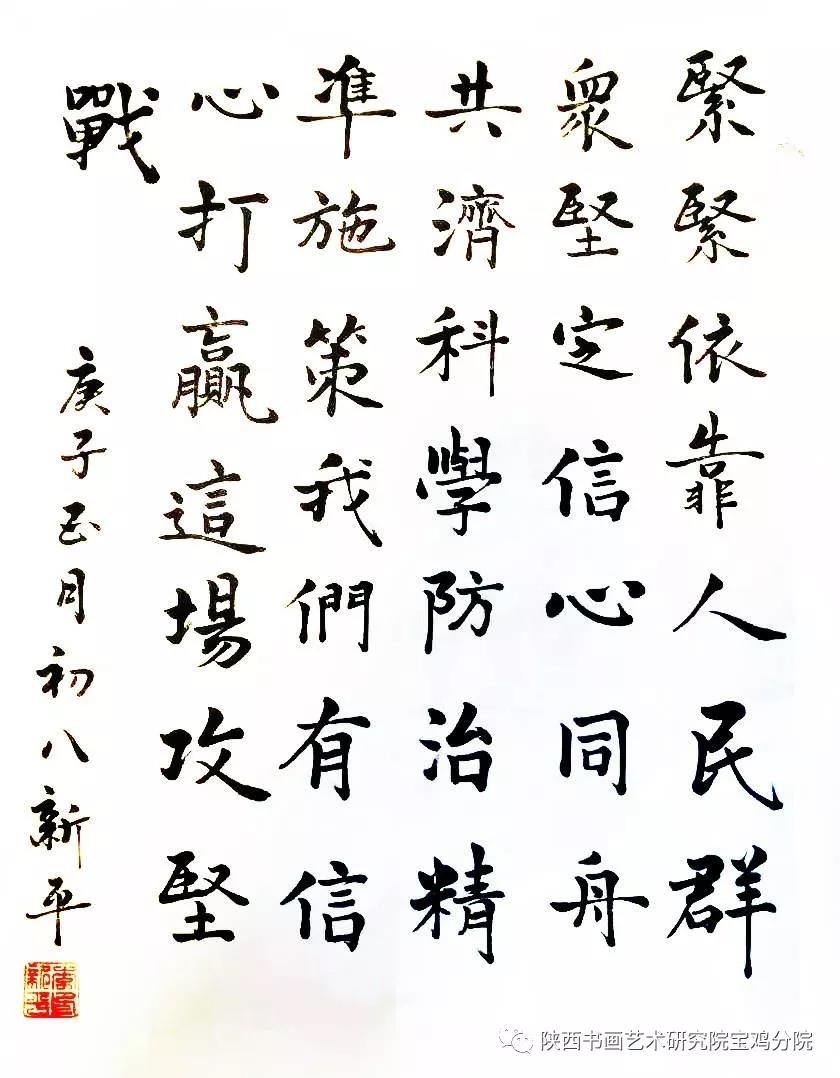 緊緊依靠人民群
衆堅定信心同舟
共濟科學防治精
準施策我們有信
心打贏這場攻堅
戰
庚子正月初八新平
陕西书画艺术研究院宝鸡分院